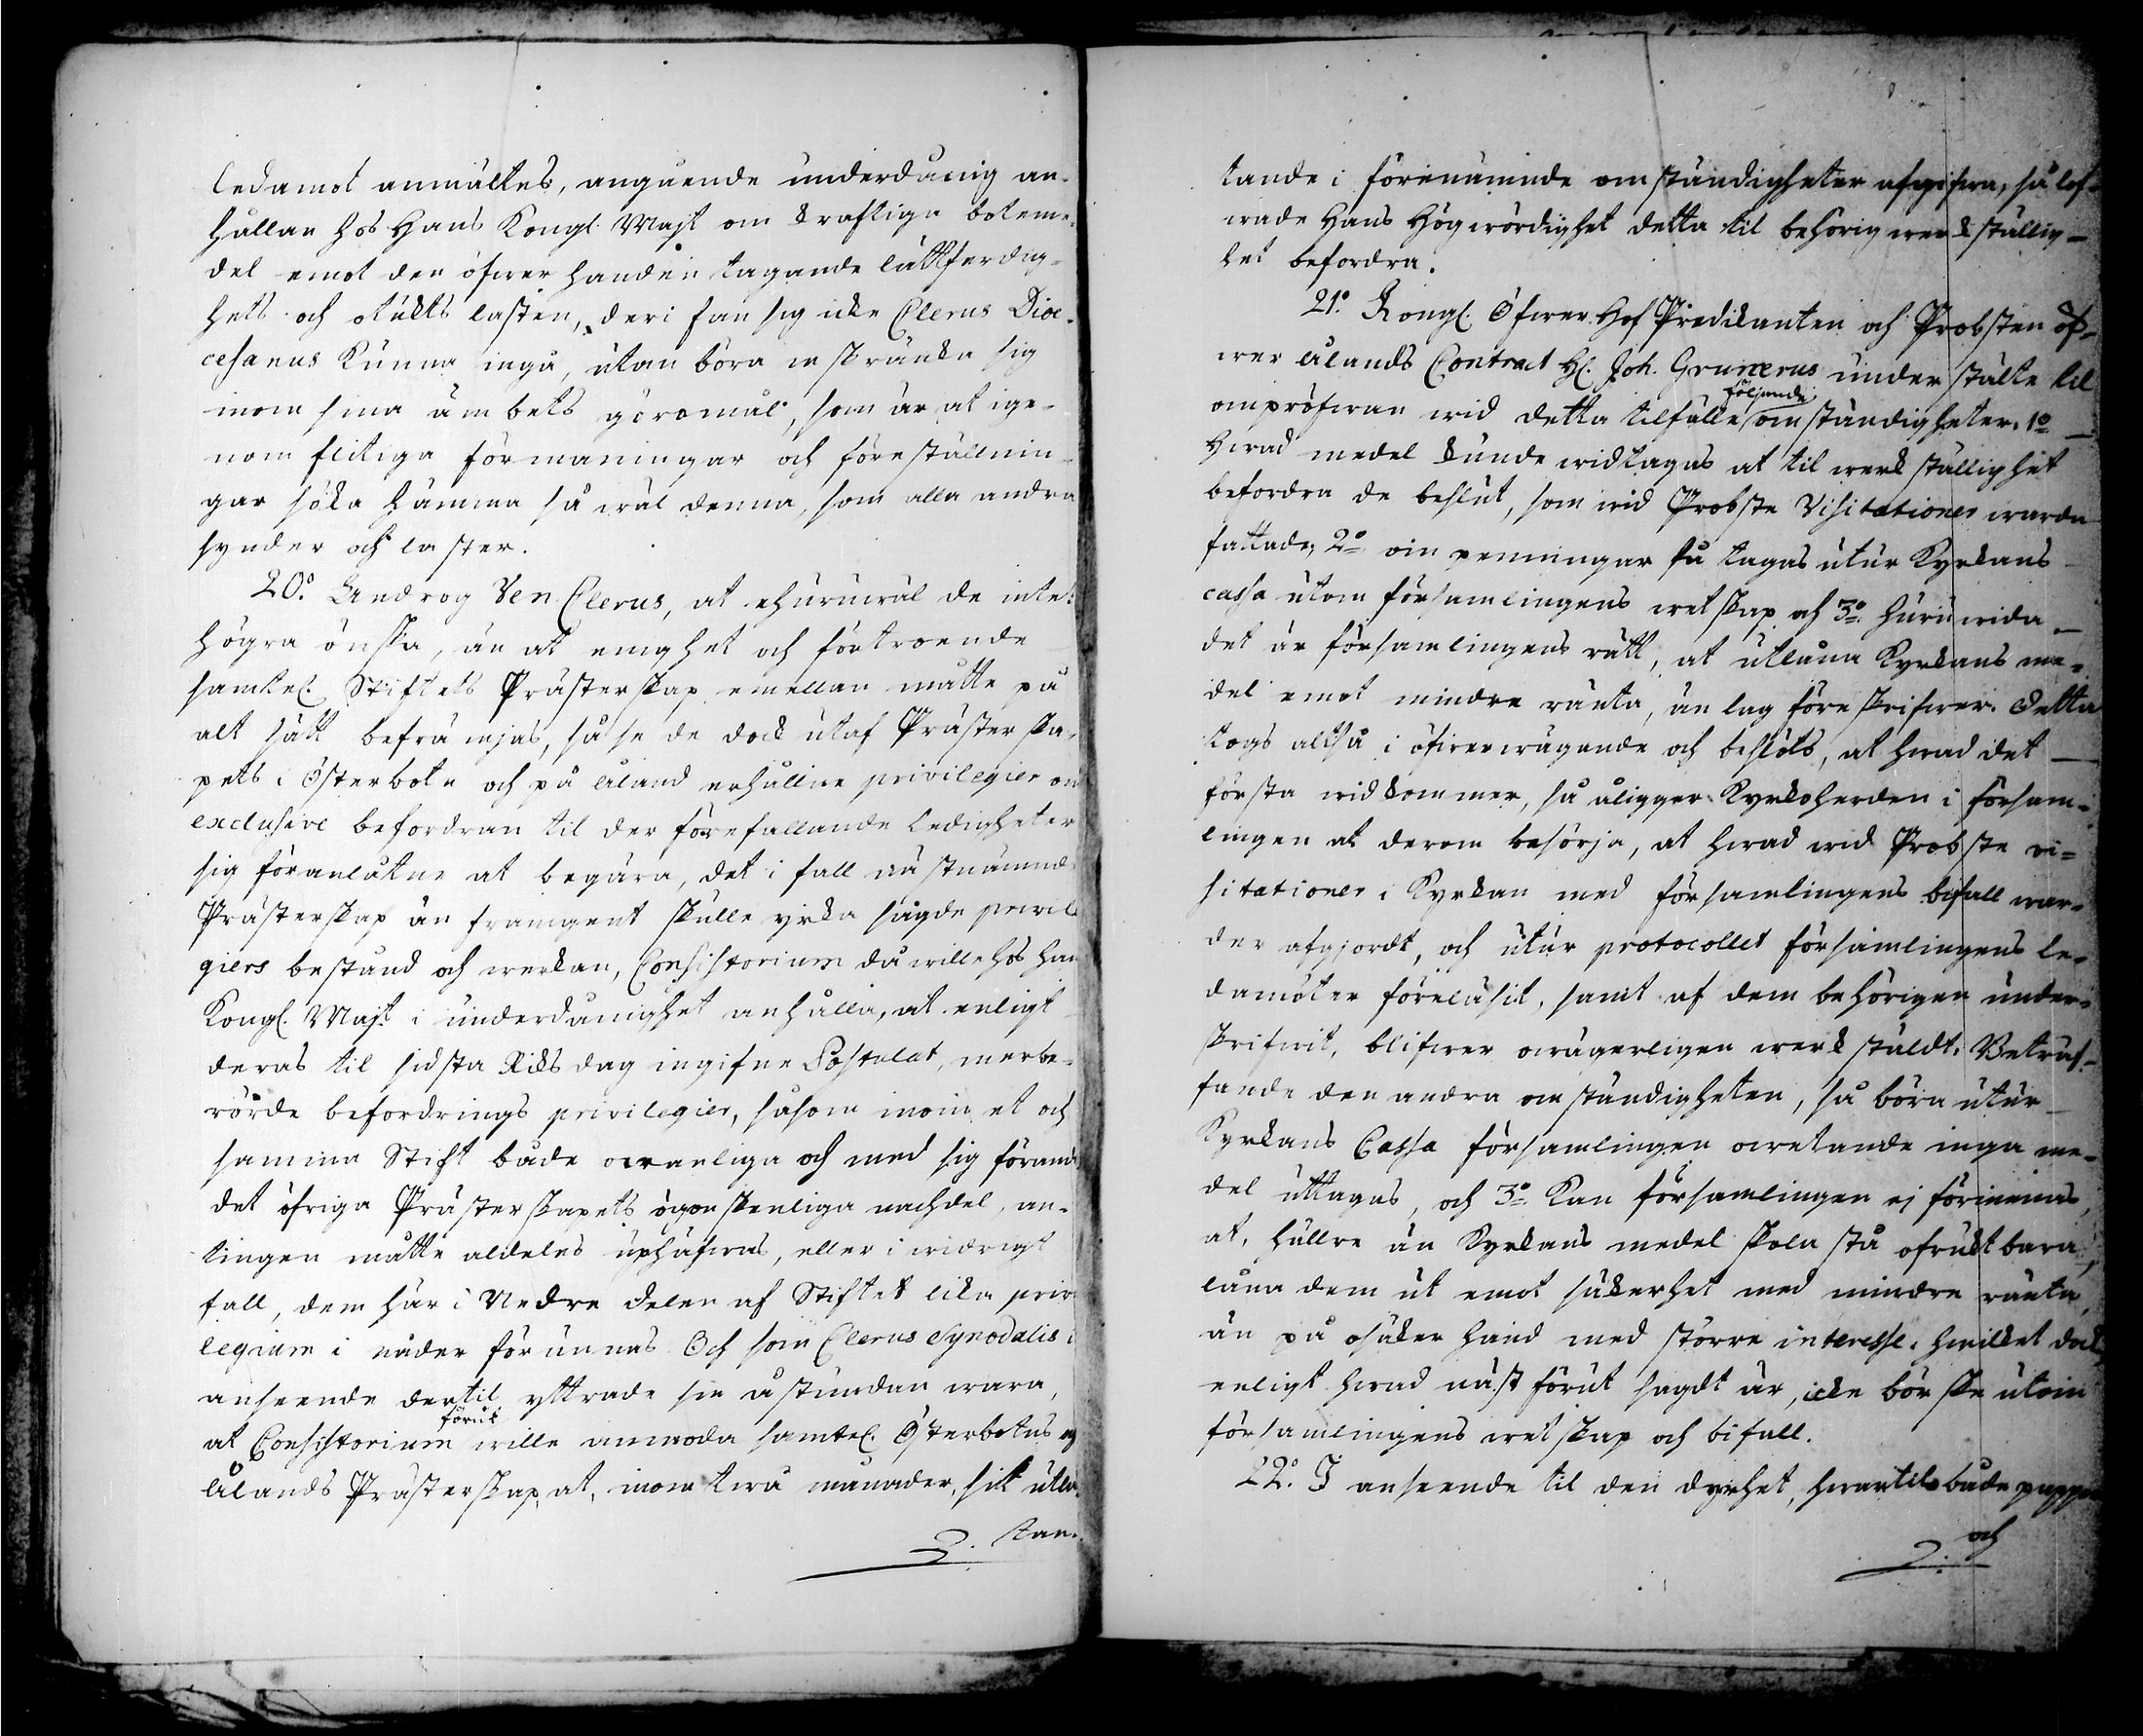 ledamot anmältes, angående underdånig an-
hållan hos Hans Kongl. Maj:t om kraftiga boteme-
del emot den öfwer handen tagande lättferdig-
hets och otukts lasten, deri fan sig icke Clerus Dioe-
cesanus kunna ingå, utan böra inskränka sig
inom sina ämbets göromål, som är at ige-
nom flitiga förmaningar och föreställnin-
gar söka hämma så wäl denna, som alla andra
synder och laster.
20:o Androg Ven. Clerus, at ehuruwäl de intet
högra önska, än at enighet och förtroende
samtel. Stiftets Prästerskap emellan måtte på
alt sätt befrämjas, så se de dock utaf Prästerska-
pets i Österbotn och på Åland erhållne privilegier om
exclusive befordran til der förefallande ledigheter
sig föranlåtne at begära, det i fall nästnämnde
Prästerskap än framgent skulle yrka sagde privile
giers bestånd och werkan, Consistorium då wille hos Hans
Kongl. Maj:t i underdånighet anhålla, at enligt
deras til sidsta Riksdag ingifne Postulat, merbe-
rörde befordrings privilegier, såsom inom et och
samma Stift både owanliga och med sig förande
det öfriga Prästerskapets ögonskenliga nachdel, an-
tingen måtte aldeles uphäfwas, eller i widrigt
fall, dem här i Nedre delen af Stiftet lika privi
legium i nåder förunnas. Och som Clerus Synodalis i
anseende dertil yttrade sin åstundan wara,
at Consistorium förut wille anmoda samtel. Österbotns och
Ålands Prästerskap, at, inom twå månader, sitt utlå-
tan-
tande i förenämnde omständigheter afgifwa, så lof-
wade Hans Högwördighet detta til behörig werkställig-
het befordra.
21:o Kongl. Öfwer Hof Predikanten och Probsten öf-
wer Ålands Contract H. Joh. Grunerus understälte til
ompröfwan wid detta tilfälle följande omständigheter. 1:o
Hwad medel kunde widtagas at til werkställighet
befordra de beslut, som wid Probste Visitationer warda
fattade; 2:o om penningar få tagas utur Kyrkans
cassa utom församlingens wetskap, och 3:o huruwida
det är församlingens rätt, at utlåna Kyrkans me-
del emot mindre ränta, än lag föreskrifwer. Detta
togs altså i öfwerwägande och beslöts, at hwad det
första widkommer, så åligger Kyrkoherden i försam-
lingen at derom besörja, at hwad wid Probste vi-
sitationer i Kyrkan med församlingens bifall war-
der afgjordt, och utur protocollet församlingens le-
damöter föreläsit, samt af dem behörigen under-
skrifwit, blifwer owägerligen werkstäldt. Beträf-
fande den andra omständigheten, så böra utur
Kyrkans Cassa församlingen owetande inga me-
del uttagas, och 3:o Kan församlingen ej förmenas,
at, hällre än Kyrkans medel skola stå ofruktbara,
låna dem ut emot säkerhet med mindre ränta,
än på osäker hand med större interesse, hwilket dock,
enligt hwad näst förut sagdt är, icke bör ske utom
församlingens wetskap och bifall.
22:o I anseende til den dyrhet, hwartil både papper
och